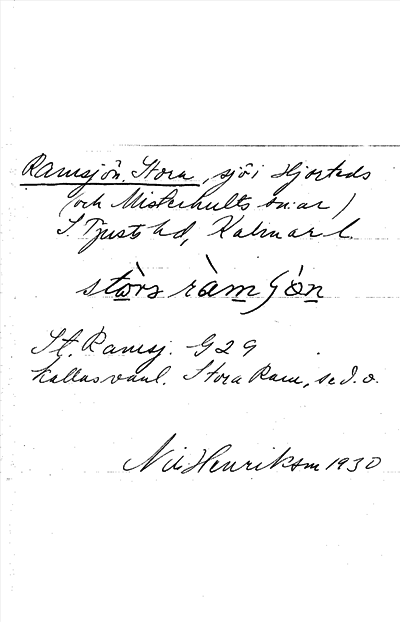 Ramsjön, Stora, sjö i Hjorteds
(och Misterhults snar)
S Tjusts hd, Kalmar l.
stòra ràmsjön
St. Ramsj. G 29
kallas vanl. Stora Ram, se d. o.
Nils Henriksson 1930